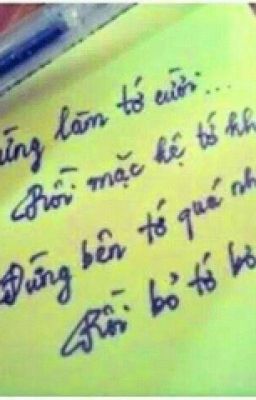 làm tớ cười...
Rồi mặc kệ tớ kh
Đừng bên tớ quá nh
Rồi bỏ tớ bơ